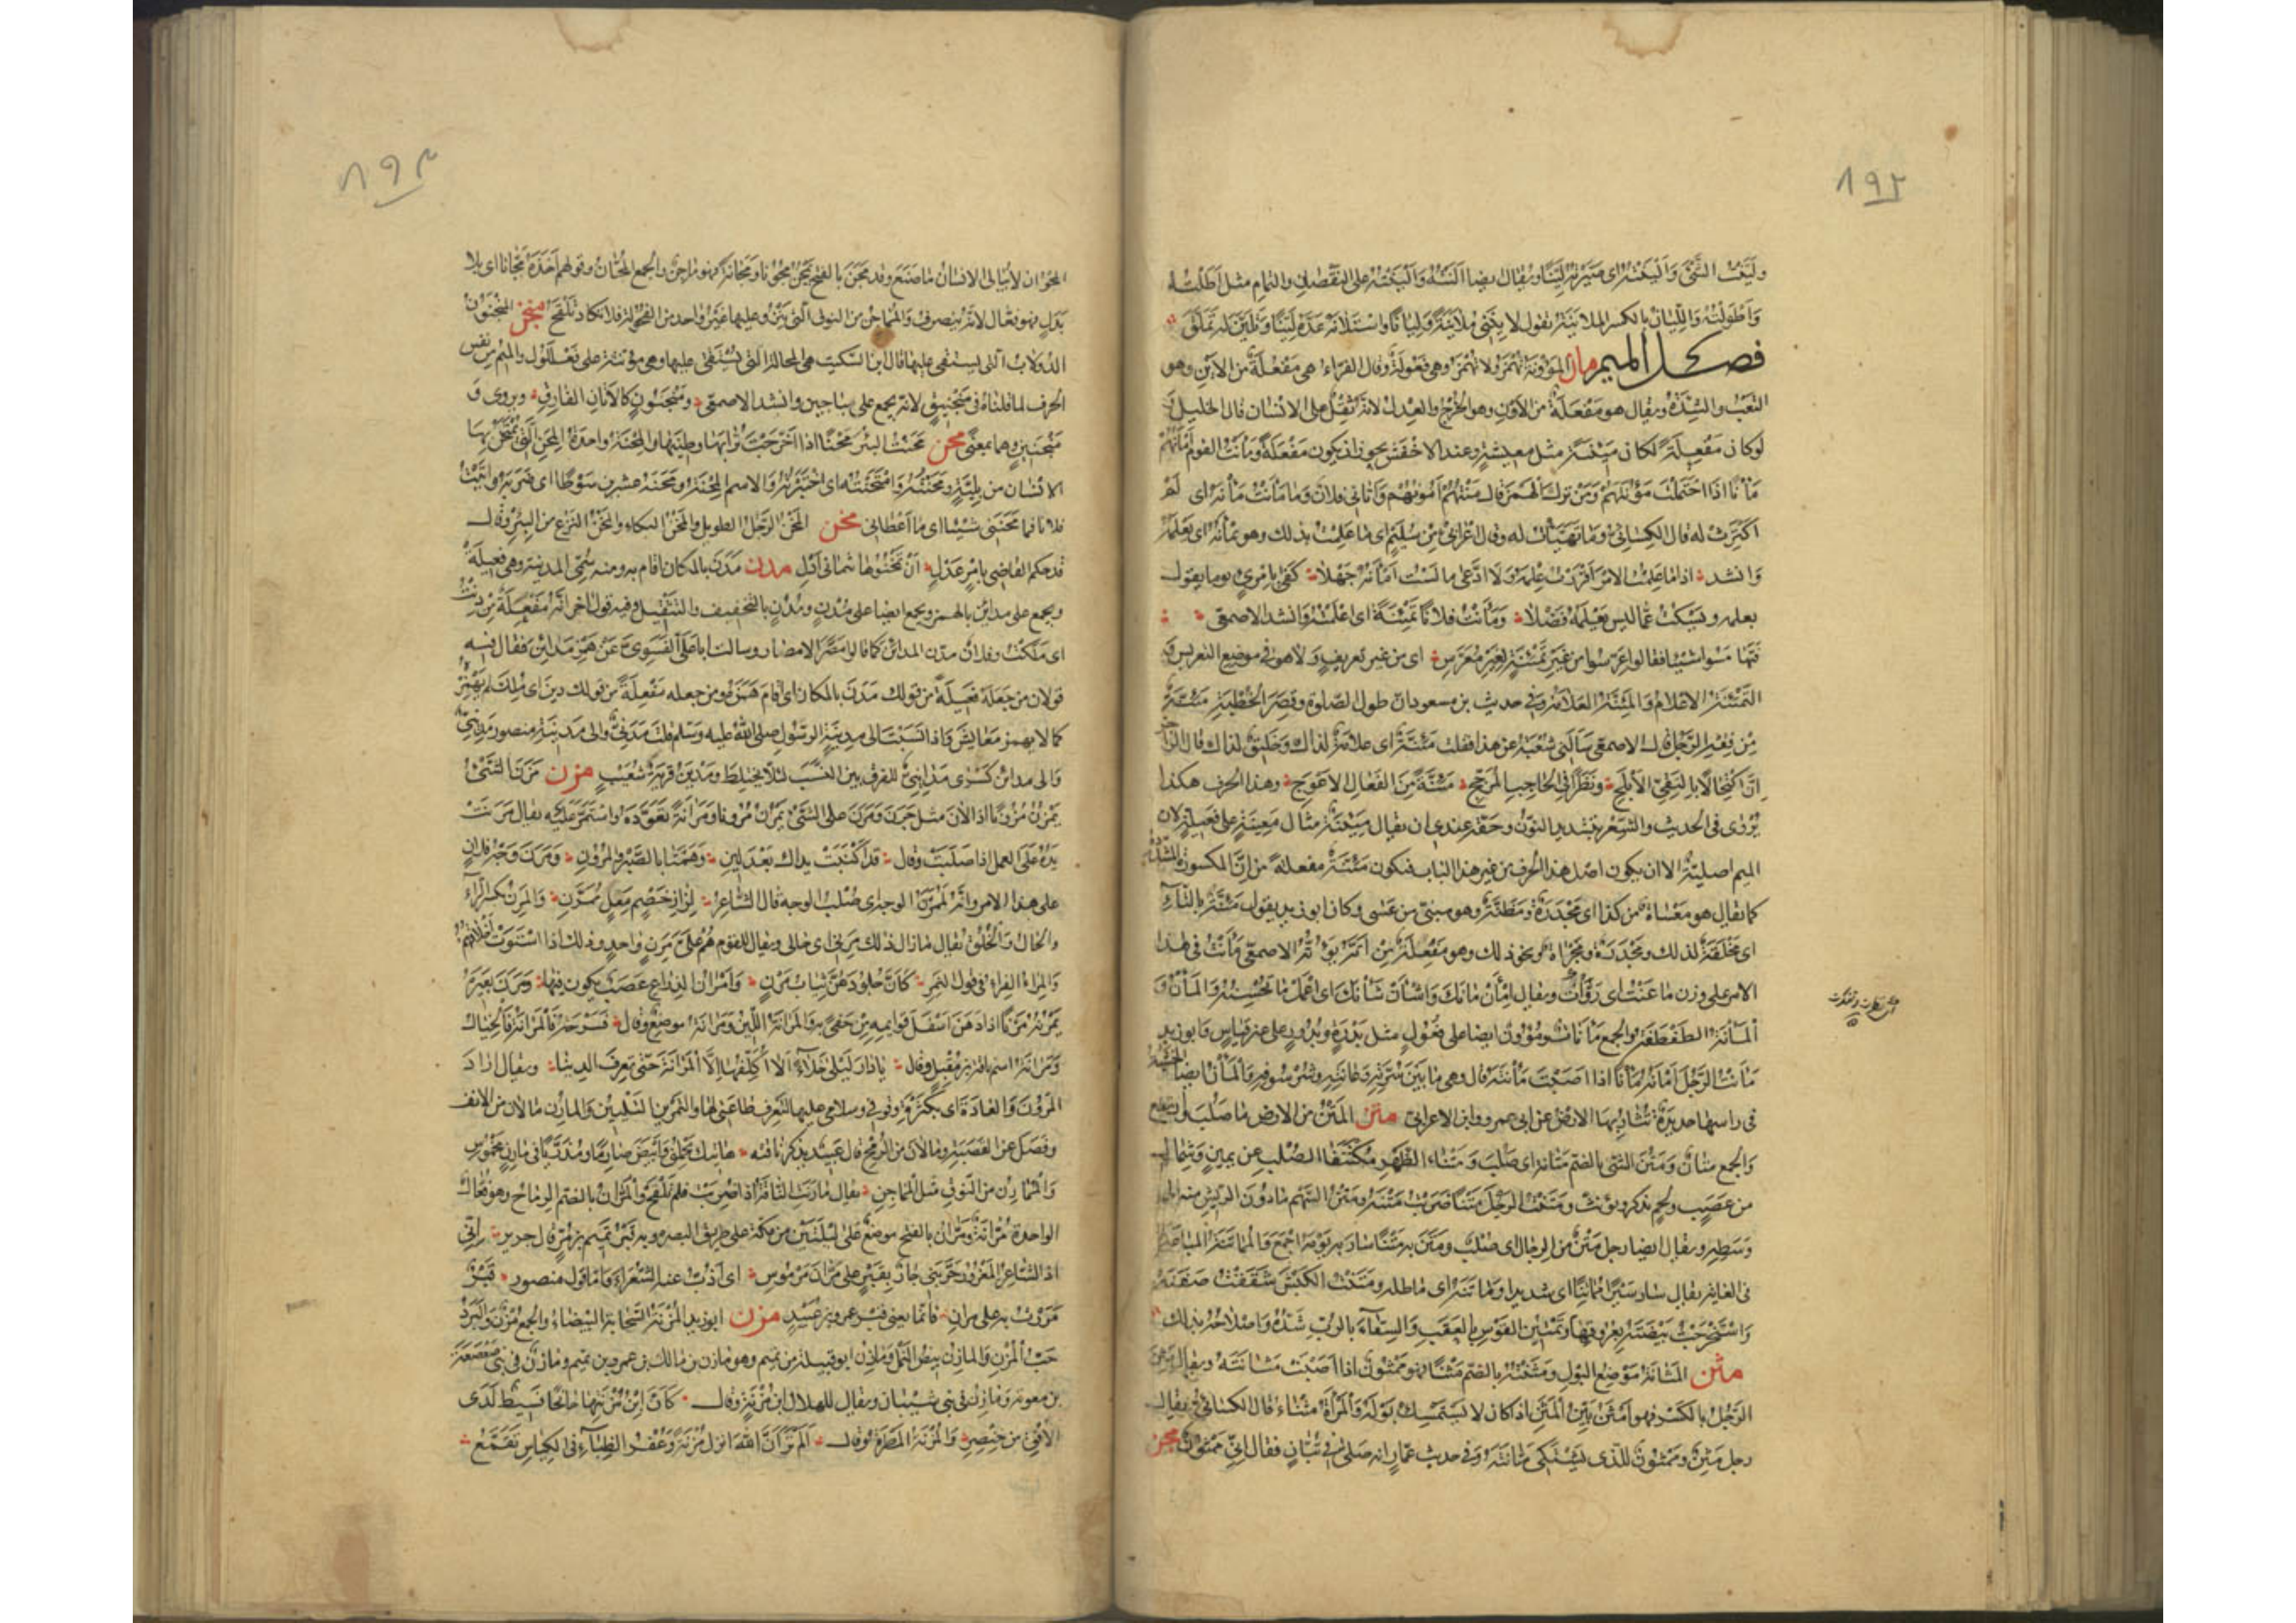 ١٩٢
وليّنت الشئ والينته اى صيرته لينا ويقال ايضا النته والينته على النقصان والتمام مثل اطلته
واطولته والليان بالكسر الملاينة تقول لاينى ملاينة وليانا واستلانه عدّه لينا وتلين له تملّق
فصل الميم مان المؤونة تهمز ولا تهمز وهى فعولة وقال الفراء هى مفعلة من الاين وهو
التعب والشدة ويقال هو مفعلة من الاون وهو الخرج والعدل لانه ثقل على الانسان قال الخليل
لو كان مفعلة لكان مئينة مثل معيشة وعند الاخفش يجوز ان يكون مفعلة ومأنت القوم امأنهم
مأنا اذا احتملت مؤنتهم ومن ترك الهمز قال منتهم امونهم واتانى فلان وما مأنت مأنه اى لم
اكترث له قال الكسائى وما تهيأت له وقال اعرابى من سليم اى ما علمت بذلك وهو يمأنه اى يعلمه
وانشد اذا ما علمت الامر اقررت علمه ولا ادعى ما لست امأنه جهلا كفى بامرئ يوما يقول
بعلمه ويسكت عما ليس يعلمه فضلا ومأنت فلانا تمئنة اى اعلمته وانشد الاصمعى
فتهامسوا شيئا فقالوا عرسوا من غير تمئنة لغير معرس اى من غير تعريف ولا هو فى موضع التعريس
التمئنة الاعلام والمئنة العلامة وفى حديث بن مسعود ان طول الصلوة وقصر الخطبة مئنة
من فقه الرجل قال الاصمعى سألنى شعبة عن هذا فقلت مئنة اى علامة لذاك وخليق لذاك قال الراجز
ان اكتحالا بالنقى الابلج ونظرا فى الحاجب المزجج مئنة من الفعال الاعوج وهذا الحرف هكذا
يروى فى الحديث والشعر بتشديد النون وحقه عندى ان يقال مئينة مثال معينة على فعيلة لان
الميم اصلية الا ان يكون اصل هذا الحرف من غير هذا الباب فيكون مئنة مفعلة من ان المكسورة المشددة
كما يقال هو معساة من كذا اى مجدرة ومظنة وهو مبنى من عسى وكان ابو زيد يقول مئتة بالتاء
اى مخلقة لذلك ومجدرة ومجراة ونحو ذلك وهو مفعلة من اتّه يؤتّه الاصمعى مأنت فى هذا
الامر على وزن ماعنت اى روأت ويقال امأن مأنك واشأن شأنك اى اعمل ما تحسنه والمأن و
المأنة الطفطفة والجمع مأنات ومؤون ايضا على فعول مثل بدرة وبدور على غير قياس ابو زيد
مأنت الرجل امأنه مأنا اذا اصبت مأنته قال وهى ما بين سرته وعانته وشرسوفه والمأن ايضا الخشبة
فى راسها حديدة تثار بها الارض عن ابى عمرو وابن الاعرابى متن المتن من الارض ما صلب وارتفع
والجمع متان ومتن الشئ بالضم متانة اى صلب ومتنا الظهر مكتنفا الصلب عن يمين وشمال
من عصب ولحم يذكر ويؤنث ومتنت الرجل متنا ضربت متنه ومتن السهم ما دون الريش منه الى
وسطه ويقال ايضا رجل متن من الرجال اى صلب ومتن به متنا سار به يومه اجمع والمماتنة المباعدة
فى الغاية يقال سار سيرا مماتنا اى شديدا وماتنه اى ماطله ومتنت الكبش شققت صفنه
واستخرجت بيضته بعروقها وتمتين القوس بالعقب والسقاء بالرب شده واصلاحه بذلك
مثن المثانة موضع البول ومثنته بالضم مثنا فهو ممثون اذا اصبت مثانته ويقال
الرجل بالكسر فهو امثن بيّن المثن اذا كان لا يستمسك بوله والمرأة مثناء قال الكسائى يقال
رجل مثن وممثون للذى يشتكى مثانته وفى حديث عمار انه صلى فى تبان فقال انى ممثون مجن
١٩٣
المجون ان لا يبالى الانسان ما صنع وقد مجن بالفتح يمجن مجونا ومجانة فهو ماجن والجمع المجان وقولهم اخذه مجانا اى بلا
بدل وهو فعال لانه ينصرف والمماجن من النوق التى ينزو عليها غير واحد من الفحولة فلا تكاد تلقح المنجنون
الدولاب التى يستقى عليها قال ابن السكيت هى المحالة التى يستقى عليها وهى مؤنثة على فعللول والميم من نفس
الحرف لما قلناه فى منجنيق لانه يجمع على مناجين وانشد الاصمعى ومنجنون كالاتان الفارق ويروى و
منجنين وهما بمعنى محن محنت البئر محنا اذا اخرجت ترابها وطينها والمحنة واحدة المحن التى يمتحن بها
الانسان من بلية ومحنته وامتحنته اى اختبرته والاسم المحنة ومحنه عشرين سوطا اى ضربه واتيت
فلانا فما محننى شيئا اى ما اعطانى مخن المخن الرجل الطويل والمخن البكاء والمخن النزع من البئر وقال
قد حكم القاضى بامر عدل ان تمخنوها ثمانى ادل مدن مدن بالمكان اقام به ومنه سمى المدينة وهى فعيلة
ويجمع على مداين بالهمز ويجمع ايضا على مدن ومدن بالتخفيف والتثقيل وفيه قول اخر انه مفعلة من دنت
اى ملكت وفلان مدن المداين كما قالوا مصر الامصار وسالت ابا على الفسوى عن همز مداين فقال فيه
قولان من جعله فعيلة من قولك مدن بالمكان اى اقام همزه ومن جعله مفعلة من قولك دين اى ملك لم يهمزه
كما لا يهمز معايش واذا نسبت الى مدينة الرسول صلى الله عليه وسلم قلت مدنى والى مدينة منصور مدينى
والى مدائن كسرى مداينى للفرق بين النسب لئلا يختلط ومدين قرية شعيب مرن مرن الشئ
يمرن مرونا اذا لان مثل جرن ومرن على الشئ يمرن مرونا ومرانة تعوده واستمر عليه يقال مرنت
يده على العمل اذا صلبت وقال قد اكنبت يداك بعد لين وهمتا بالصبر والمرون ومرن وجه فلان
على هذا الامر وانه لممرن الوجه اى صلب الوجه قال الشاعر لزاز خصم معل ممرن والمرن بكسر الراء
والحال والخلق يقال ما زال ذلك مرنى اى حالى ويقال للقوم هم على مرن واحد وذلك اذا استوت اخلاقهم
والمرن الفراء فى قول النمر كان جلودهن ثياب مرن وامران الذراع عصب يكون فيها ومرن بعيره
يمرنه مرنا اذا دهن اسفل قوائمه من حفى به والمرانة اللين ومرانة موضع وقال
ومرانة اسم ناقة بن مقبل وقال يا دار ليلى خلاء لا اكلفها الا المرانة حتى تعرف الدينا ويقال اراد
المرون والعادة اى بكثرة وقوفى وسلامى عليها لتعرف طاعتى لها والتمرين التليين والمارن ما لان من الانف
وفضل عن القصبة وما لان من الرمح قال عبيد يذكر ناقته هاتيك تحملنى وابيض صارما ومذربا فى مارن مخموس
والممارن من النوق مثل المماجن يقال مارنت الناقة اذا ضربت فلم تلقح والمران بالضم الرماح وهو فعال
الواحدة مرانة ومران بالفتح موضع على ليلتين من مكة على طريق البصرة وبه قبر تميم بن مر قال جرير انى
اذا الشاعر المغرور حربنى جار لقبر على مران مرموس اى اذب عنه الشعراء واما قول منصور قبر
مررت به على مران فانما يعنى قبر عمرو بن عبيد مزن ابو زيد المزنة السحابة البيضاء والجمع مزن والبرد
حب المزن والمازن بيض النمل ومازن ابو قبيلة من تميم وهو مازن بن مالك بن عمرو بن تميم ومازن فى بنى صعصعة
بن معوية ومازن فى بنى شيبان ويقال للهلال ابن مزنة وقال كان ابن مزنتها جانحا فسيط لدى
الافق من خنصر والمزنة المطرة وقال الم تر ان الله انزل مزنة وعفر الظباء فى الكناس تقمع